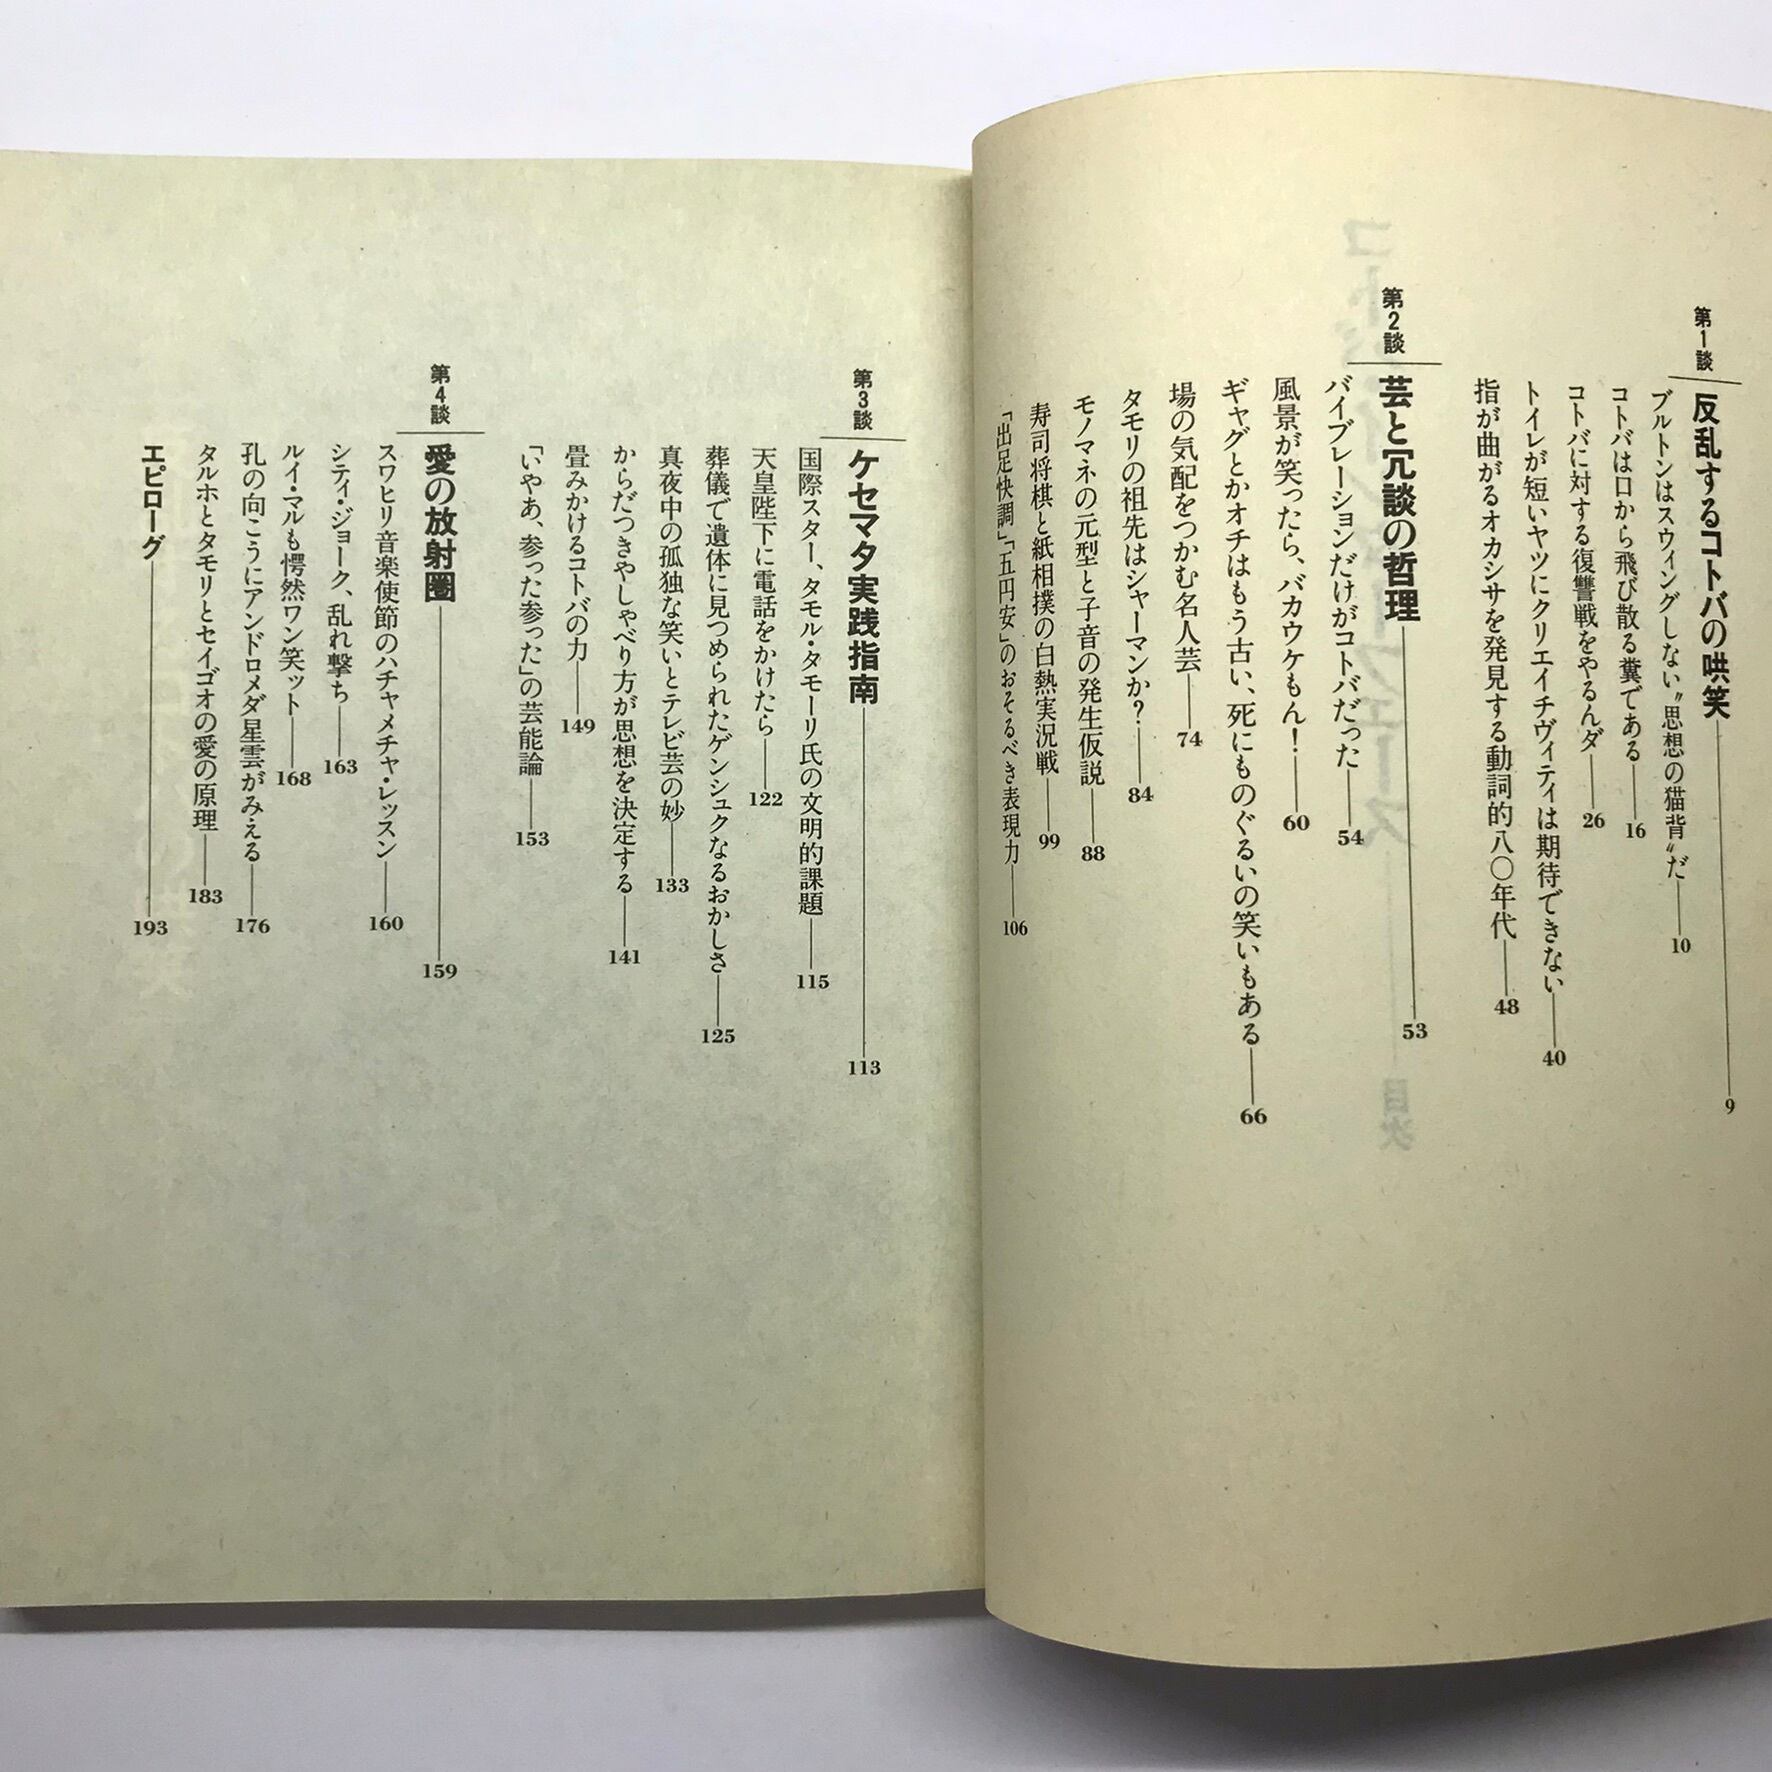 第1談
反乱するコトバの哄笑 9
ブルトンはスウィングしない〝思想の猫背〟だ 10
コトバは口から飛び散る糞である 16
コトバに対する復讐戦をやるんダ 26
トイレが短いヤツにクリエイチヴィティは期待できない 40
指が曲がるオカシサを発見する動詞的八〇年代 48
第2談
芸と冗談の哲理 53
バイブレーションだけがコトバだった 54
風景が笑ったら、バカウケもん! 60
ギャグとかオチはもう古い、死にものぐるいの笑いもある 66
場の気配をつかむ名人芸 74
タモリの祖先はシャーマンか? 84
モノマネの元型と子音の発生仮説 88
寿司将棋と紙相撲の白熱実況戦 99
「出足快調」「五円安」のおそるべき表現力 106
第3談
ケセマタ実践指南 113
国際スター、タモル・タモーリ氏の文明的課題 115
天皇陛下に電話をかけたら 122
葬儀で遺体に見つめられたゲンシュクなるおかしさ 125
真夜中の孤独な笑いとテレビ芸の妙 133
からだつきやしゃべり方が思想を決定する 141
畳みかけるコトバの力 149
「いやあ、参った参った」の芸能論 153
第4談
愛の放射圏 159
スワヒリ音楽使節のハチャメチャ・レッスン 160
シティ・ジョーク、乱れ撃ち 163
ルイ・マルも愕然ワン笑ット 168
孔の向こうにアンドロメダ星雲がみえる 176
タルホとタモリとセイゴオの愛の原理 183
エピローグ 193